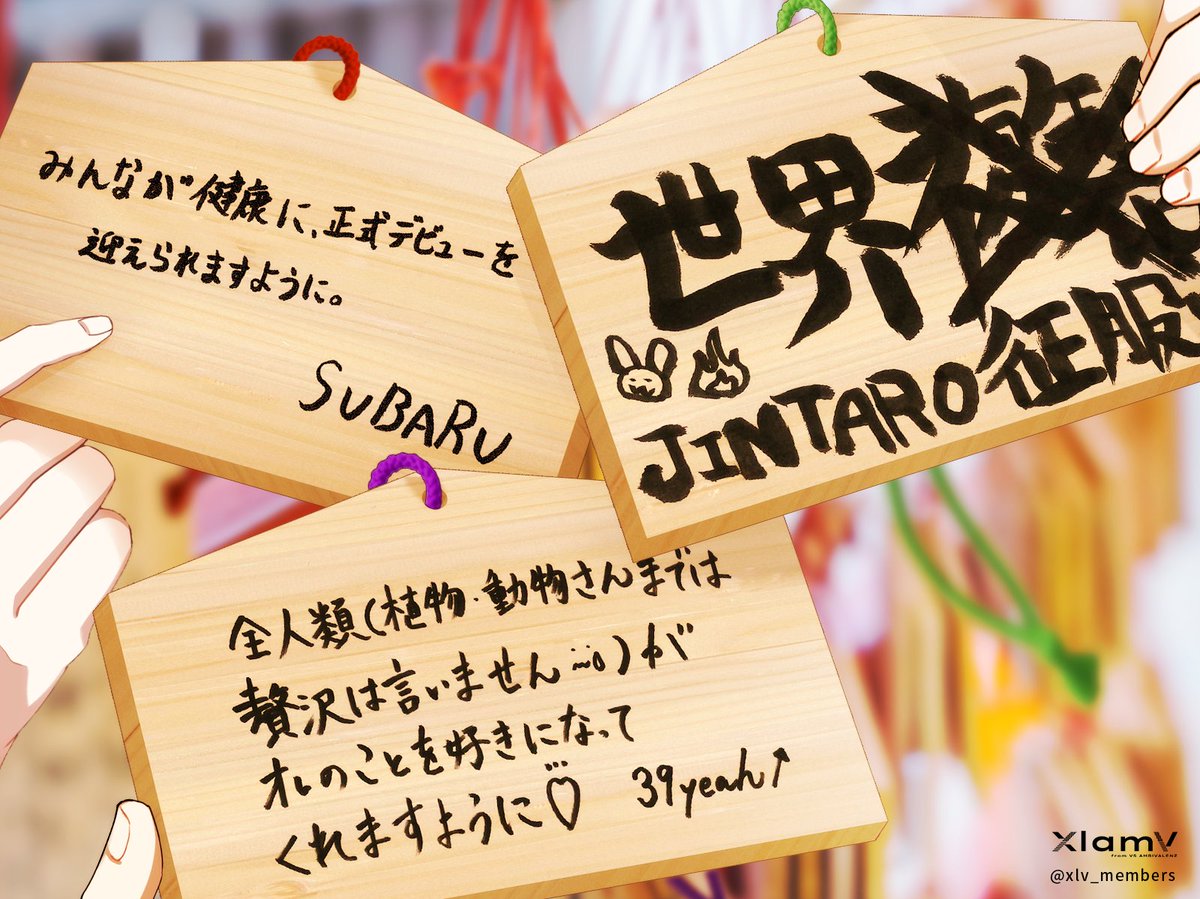 みんなが健康に、正式デビューを
迎えられますように。
SUBARU
世界
JINTARO征服
全人類(植物・動物さんまでは
贅沢は言いません…。)が
オレのことを好きになって
くれますように♡
39yeah↑
XlamV
from VS AMBIVALENZ
@xlv_members